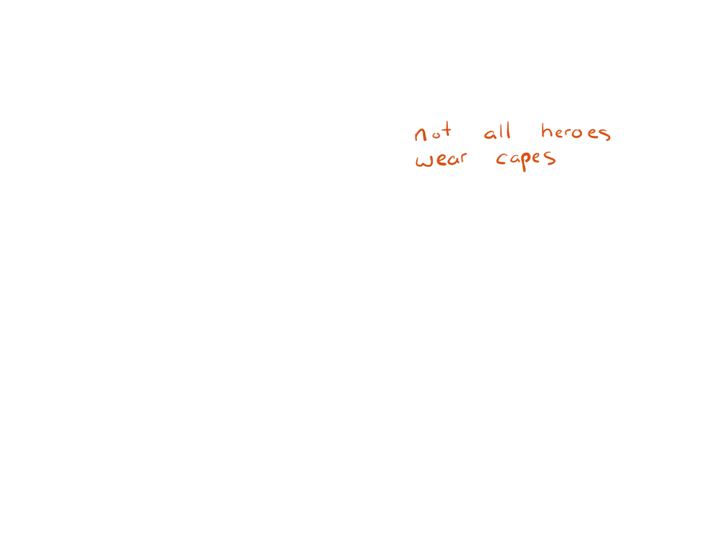 not all heroes
wear capes